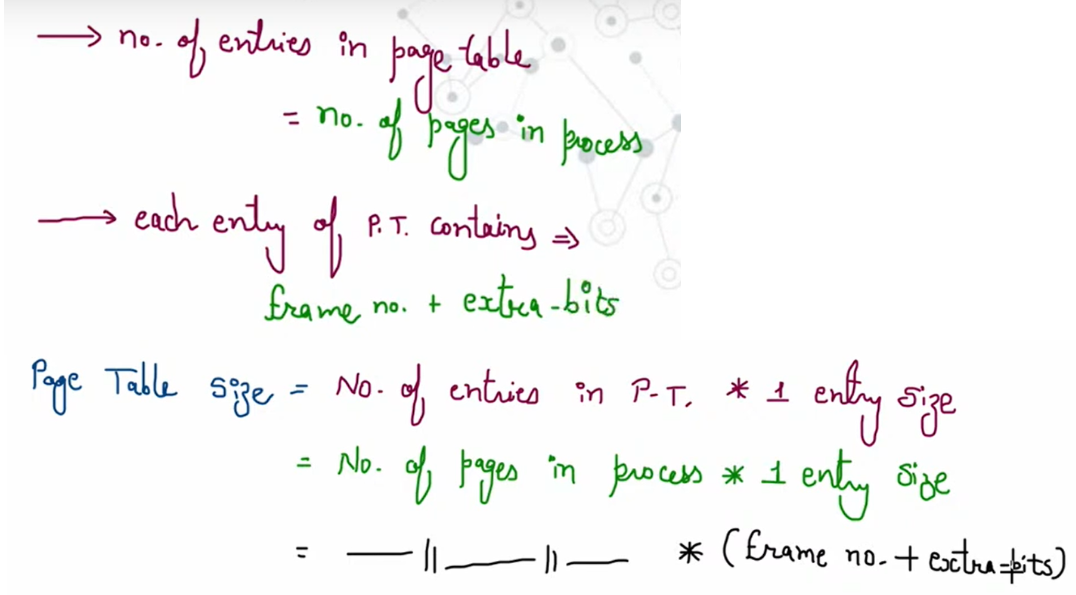 → no. of entries in page table
= no. of pages in process
→ each entry of P.T. contains ⇒
frame no. + extra-bits
Page Table size = No. of entries in P.T. * 1 entry size
= No. of pages in process * 1 entry size
= —||——||— * (frame no. + extra-bits)